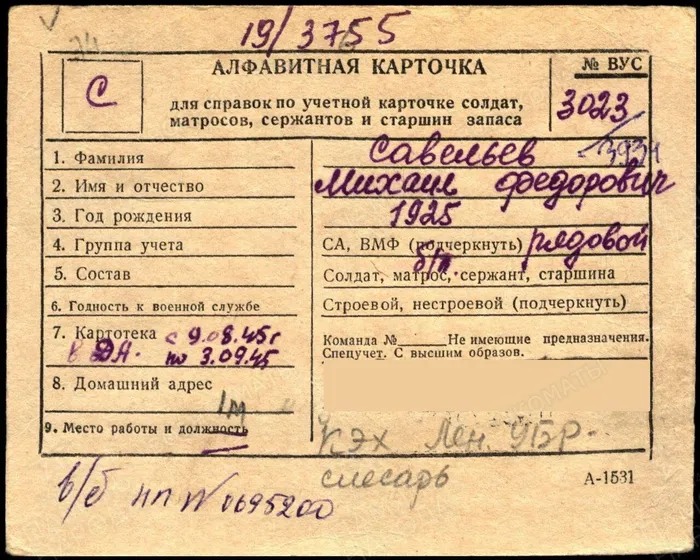 19/3755
АЛФАВИТНАЯ КАРТОЧКА
№ ВУС
С
для справок по учетной карточке солдат,
матросов, сержантов и старшин запаса
3023
1. Фамилия Савельев
2. Имя и отчество Михаил Федорович
3. Год рождения 1925
4. Группа учета СА, ВМФ (подчеркнуть) рядовой
5. Состав Солдат, матрос, сержант, старшина
6. Годность к военной службе Строевой, нестроевой (подчеркнуть)
7. Картотека с 9.08.45г Команда № Не имеющие предназначения.
в ДА. по 3.09.45 Спецучет. С высшим образов.
8. Домашний адрес
9. Место работы и должность КЭХ Лен.
слесарь
А-1531
в/б НП № 0695200